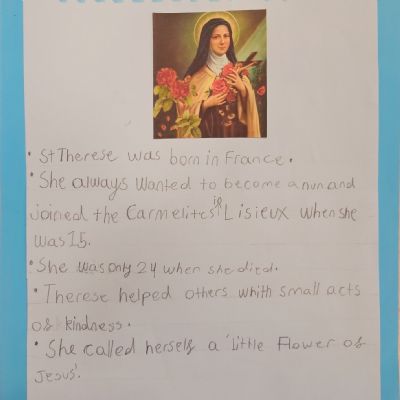 • St Therese was born in France.
• She always wanted to become a nun and
joined the Carmelites in Lisieux when she
was 15.
• She was only 24 when she died.
• Therese helped others whith small acts
of kindness.
• She called herself a 'little Flower of
Jesus'.